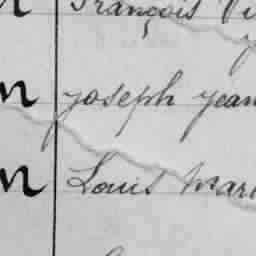 n François
n Joseph Jean
n Louis Mari